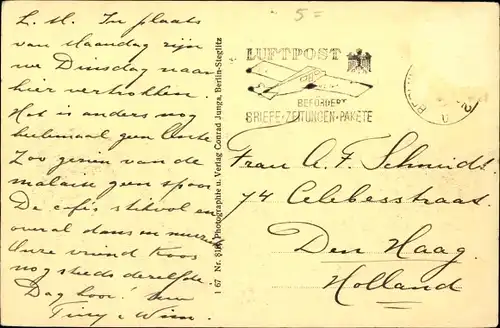 5=
L. M. In plaats
van Maandag zijn
we Dinsdag naar
hier vertrokken.
Het is anders nog
heelemaal geen
Zoo gezien van de
malaise geen spoor
De café's stikvol en
overal dans en muziek
Onze vriend Koos
nog steeds dezelfde.
Dag hoor!
Tiny & Wim
1 67 Nr. Photographie u. Verlag Conrad Junga, Berlin-Steglitz
LUFTPOST
BEFÖRDERT
BRIEFE·ZEITUNGEN·PAKETE
Frau A. F. Schmidt.
74 Celebesstraat.
Den Haag.
Holland.